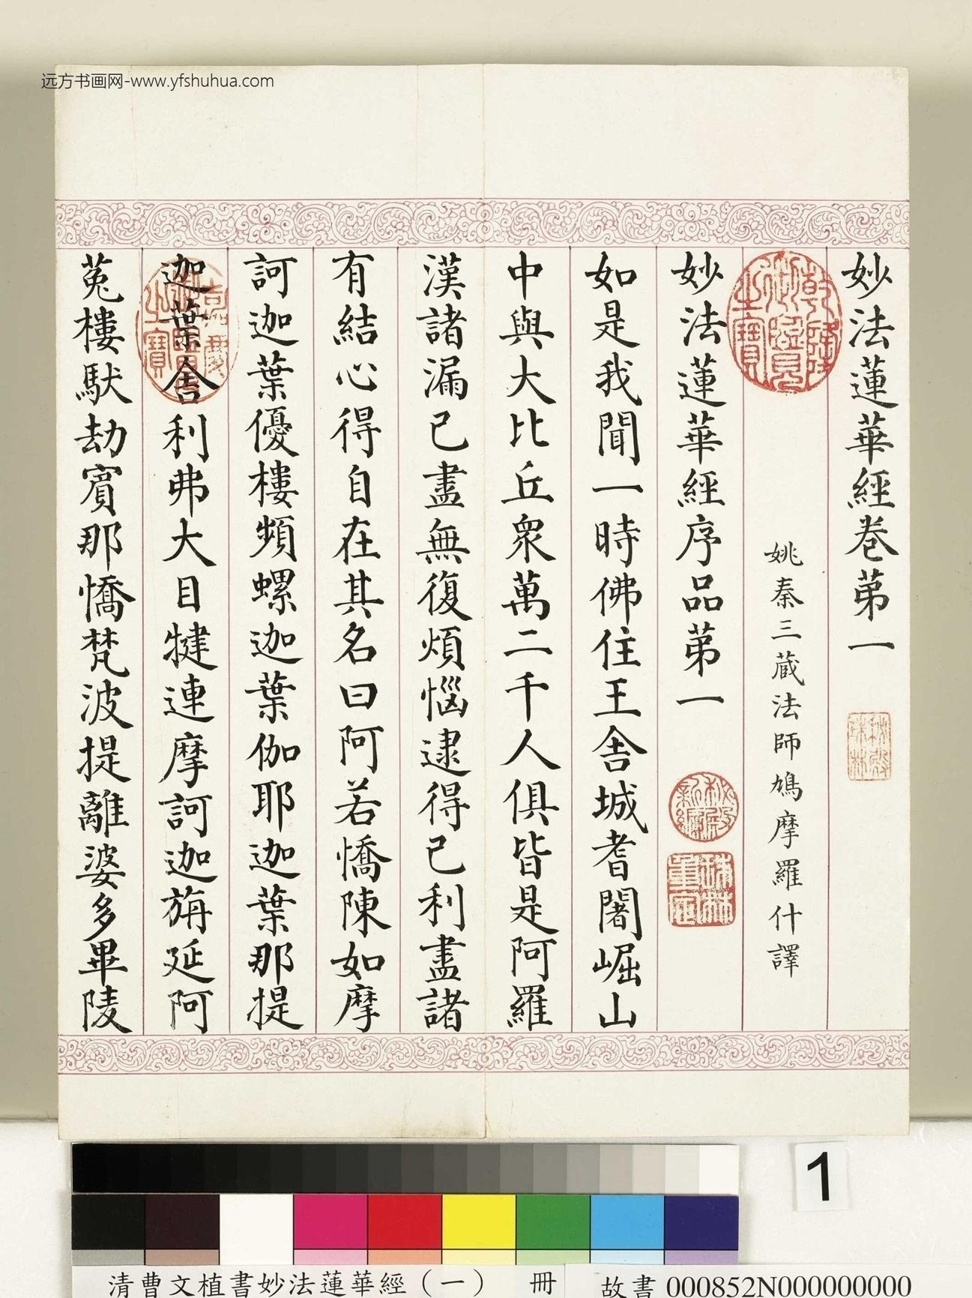 远方书画网-www.yfshuhua.com
妙法蓮華經卷苐一
姚秦三蔵法師鳩摩羅什譯
妙法蓮華經序品苐一
如是我聞一時佛住王舎城耆闍崛山
中與大比丘衆萬二千人俱皆是阿羅
漢諸漏已盡無復煩惱逮得己利盡諸
有結心得自在其名曰阿若憍陳如摩
訶迦葉優樓頻螺迦葉伽耶迦葉那提
迦葉舎利弗大目犍連摩訶迦旃延阿
㝹樓馱劫賓那憍梵波提離婆多畢陵
乾隆御覽之寶
嘉慶御覽之寶
秘殿珠林
秘殿新編
珠林重定
1
清曹文植書妙法蓮華經（一） 冊
故書 000852N000000000